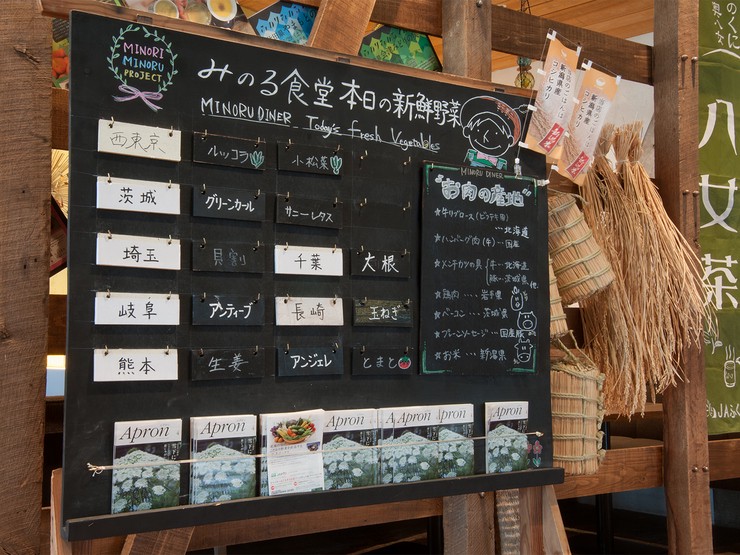 MINORI
MINORU
PROJECT
みのる食堂 本日の新鮮野菜
MINORU DINER Today's Fresh Vegetables
MINORU DINER
西東京
ルッコラ
小松菜
茨城
グリーンカール
サニーレタス
埼玉
貝割
千葉
大根
岐阜
アンディーブ
長崎
玉ねぎ
熊本
生姜
アンジェレ
とまと
"お肉の産地"
…北海道
☆ハンバーグ肉(牛)…国産
☆メンチカツの具
牛…北海道
豚…茨城県 他
☆鶏肉 …岩手県
☆ベーコン …茨城県
☆プレーンソーセージ…国産豚
☆お米 … 新潟県
Apron
Apron
Apron
Apron
Apron
Apron
新潟県産
コシヒカリ
新潟県産
コシヒカリ
八女茶